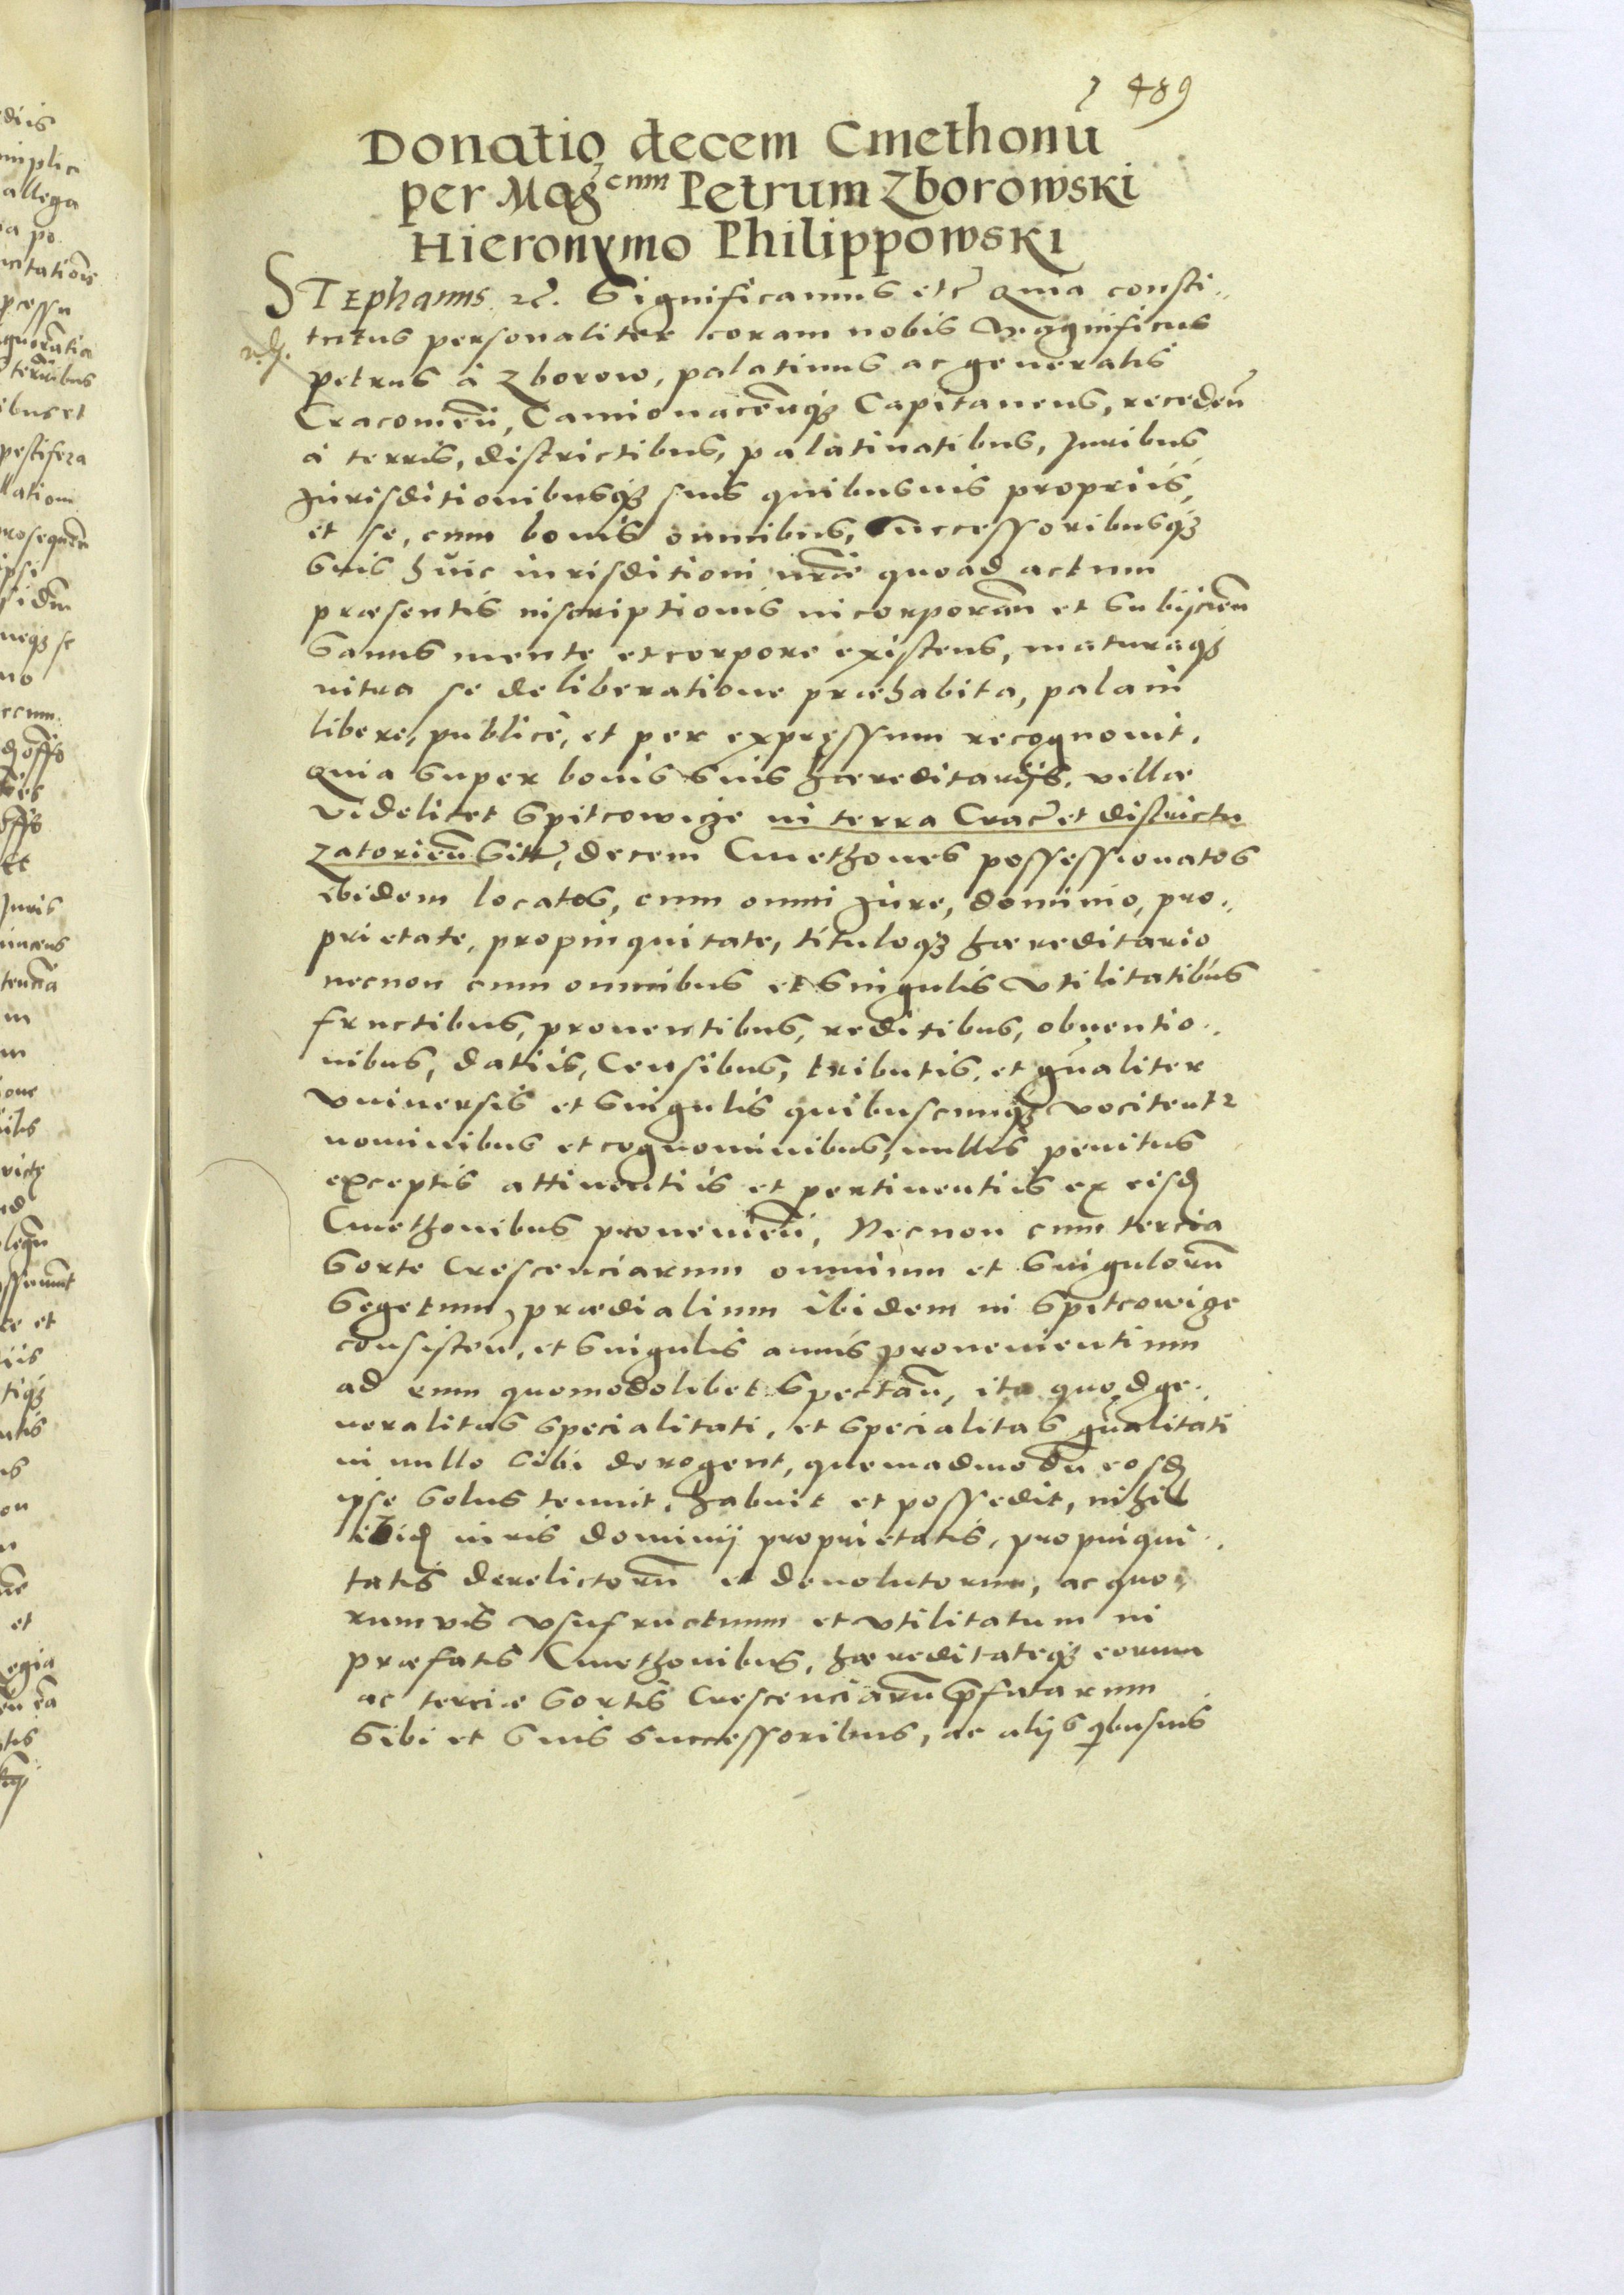 489
Donatio decem Cmethonũ
per Magcum Petrum Zborowski
Hieronymo Philippowski
STEphanus etc. Significamus etc Quia consti..
tutus personaliter coram nobis Magnificus
petrus à Zborow, palatinus ac generalis
Cracouień, Camionaceńqꝫ Capitaneus, recedeń
à terris, districtibus, palatinatibus, Juribus
Jurisditionibusqꝫ suis quibusuis proprijs,
et se, cum bonis omnibus, Successoribusqꝫ
suis huic iurisditioni nr̃ae quoad actum
præsentis inscriptionis incorporań et subijcień
Sanus mente et corpore existens, maturaqꝫ
intra se deliberatione præhabita, palam
libere, publicè, et per expressum recognouit.
Quia super bonis suis hæreditarijs, villæ
videlicet Spitcowicze in terra Crac̃ et districtu
Zatorień sitt̃, decem Cmethones possessionatos
ibidem locatos, cum omni jure, dominio, pro..
prietate, propinquitate, tituloqꝫ hæreditario
necnon cum omnibus et singulis vtilitatibus
fructibus, prouentibus, reditibus, obuentio..
nibus, datiis, Censibus, tributis, et gñaliter
vniuersis et singulis quibuscunqꝫ vocitent2
nominibus et cognominibus, nullis penitus
exceptis attinentiis et pertinentiis ex eisd
Cmethonibus prouenień, Necnon cum tercia
sorte Crescenciarum omnium et singulorũ
Segetum prædialium ibidem in Spitcowicze
consisteń, et singulis annis prouenientium
ad eum quomodolibet spectań, ita quod ge..
neralitas specialitati, et specialitas gñalitati
in nullo sibi derogent, quemadmodũ eosd
ipse solus tenuit, habuit et possedit, nihil
ibid iuris dominij proprietatis, propinqui..
tatis derelictorũ et deuolutorum, ac quo..
rumuis vsufructuum et vtilitatum in
præfatis Cmethonibus, hæreditateqꝫ eorum
ac terciæ sortis Crescenciarũ p̃fatarum
Sibi et suis successoribus, ac alijs qbusuis